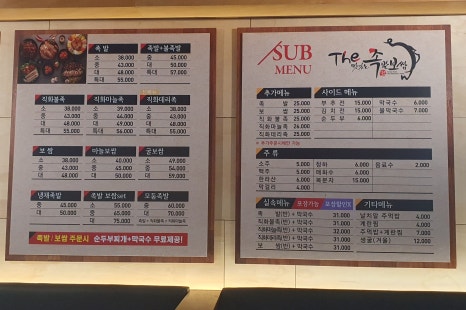 족 발
소 38,000
중 43,000
대 48,000
특대 55,000
족발+불족발
중 45,000
대 50,000
특대 57,000
직화불족
소 39,000
중 44,000
대 49,000
특대 56,000
직화마늘족
소 38,000
중 43,000
대 48,000
특대 55,000
직화데리족
소 39,000
중 44,000
대 49,000
특대 56,000
보 쌈
소 38,000
중 43,000
대 48,000
마늘보쌈
소 40,000
중 45,000
대 50,000
굴보쌈
소 49,000
중 54,000
대 59,000
냉채족발
중 45,000
대 50,000
족발 보쌈set
소 55,000
중 65,000
대 75,000
모둠족발
중 60,000
대 70,000
족발 / 보쌈 주문시 순두부찌개+막국수 무료제공!
SUB
MENU
The 족
보쌈
추가메뉴
족 발 25,000
보 쌈 25,000
직화불족 26,000
직화마늘족 26,000
직화데리족 26,000
사이드 메뉴
부추전 15,000
김치전 15,000
순두부 6,000
막국수 6,000
물막국수 7,000
주 류
소주 5,000
맥주 5,000
한라산 6,000
막걸리 4,000
청하 6,000
매화수 6,000
복분자 15,000
음료수 2,000
실속메뉴 포장가능
족 발(반)+막국수 31,000
직화불족(반)+막국수 32,000
직화마늘족(반)+막국수 32,000
직화데리족(반)+막국수 32,000
보 쌈(반)+막국수 31,000
기타메뉴
날치알 주먹밥 4,000
계란찜 4,000
주먹밥+계란찜 7,000
생굴(겨울) 12,000